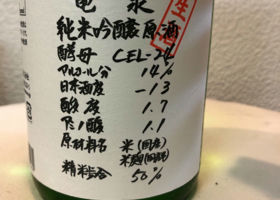 亀泉
純米吟醸原酒
生
酵母 CEL-24
アルコール分 14%
日本酒度 -13
酸度 1.7
アミノ酸 1.1
原材料名 米(国産)
米麹(国産米)
精米歩合 50%